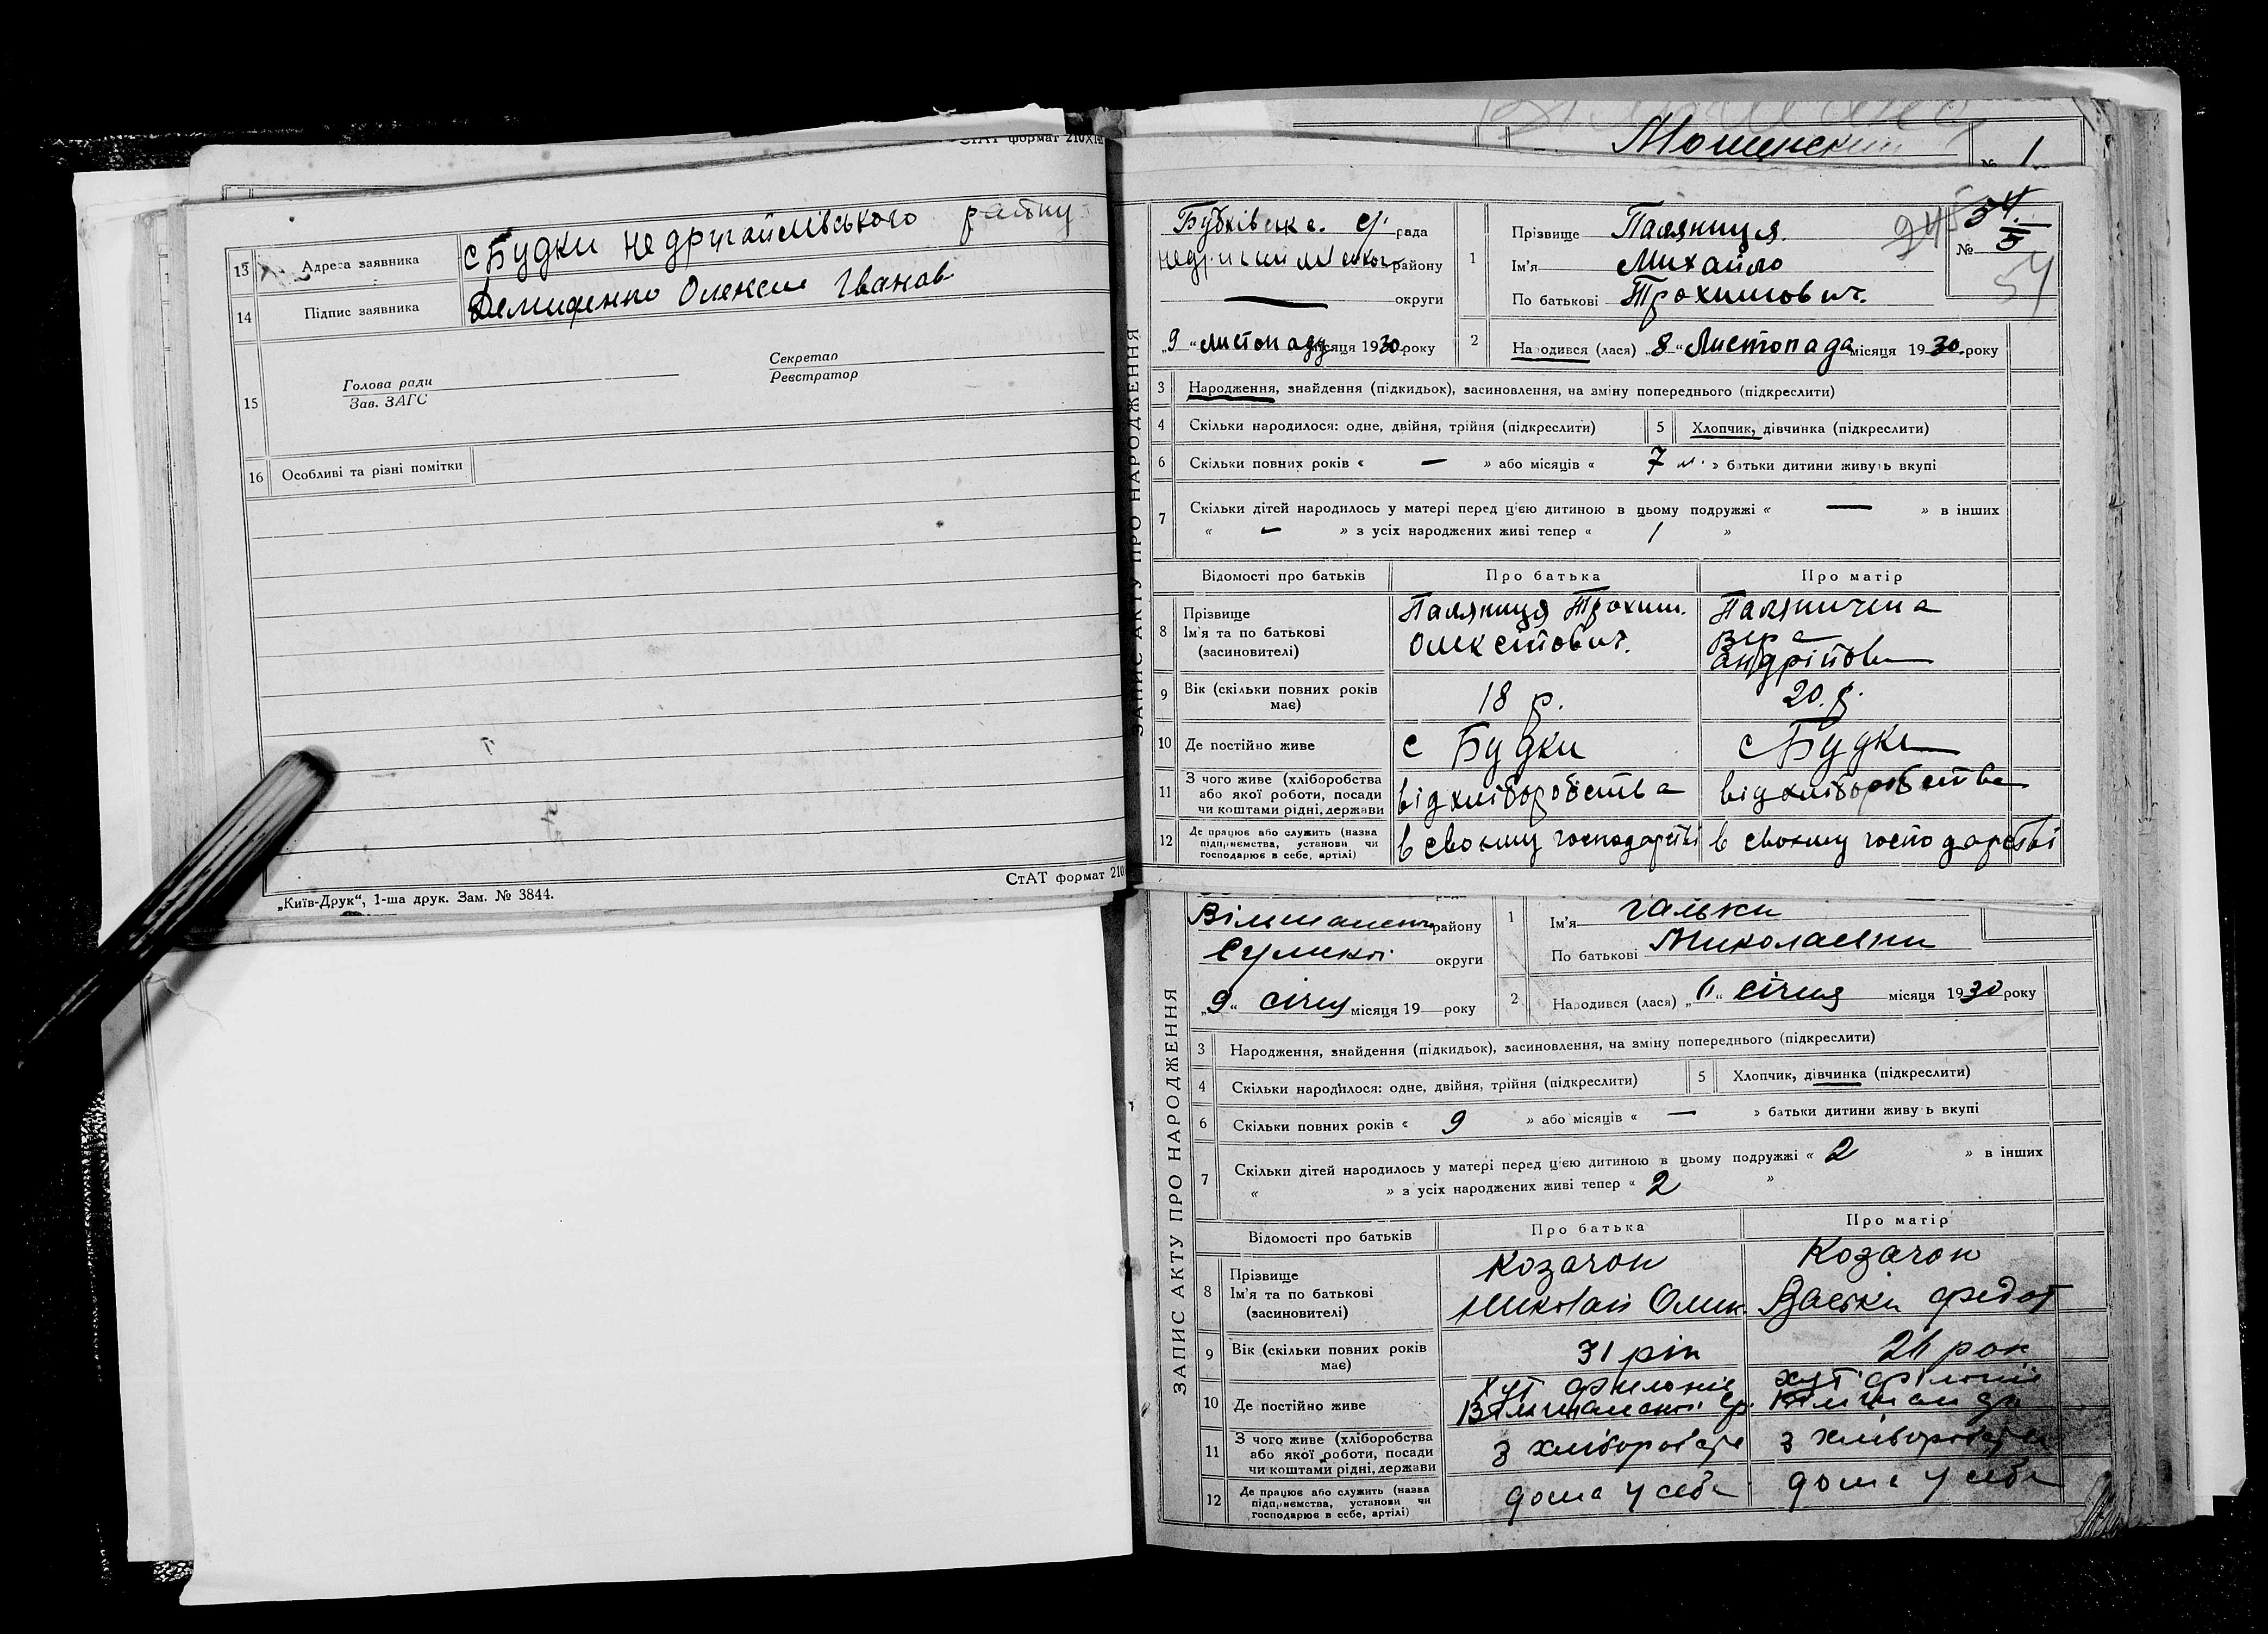 СтАТ формат 210
13 Адреса заявника с Будки Недригайлівського району
14 Підпис заявника Демиденко Олексій Іванов
15 Голова ради
Зав. ЗАГС
Секретар
Реєстратор
16 Особливі та різні помітки
СтАТ формат 210
„Київ-Друк“, 1-ша друк. Зам. № 3844.
№ 1
ЗАПИС АКТУ ПРО НАРОДЖЕННЯ
Будківська с. рада
району
округи
„9“ листопаду місяця 1930 року
1 Прізвище Паляниця
Ім'я Михайло
По батькові Трохимович.
№ 54
5
245
54
2 Народився (лася) „8“ Листопада місяця 1930. року
3 Народження, знайдення (підкидьок), засиновлення, на зміну попереднього (підкреслити)
4 Скільки народилося: одне, двійня, трійня (підкреслити)
5 Хлопчик, дівчинка (підкреслити)
6 Скільки повних років « — » або місяців « 7 м. » батьки дитини живуть вкупі
7 Скільки дітей народилось у матері перед цією дитиною в цьому подружжі « — » в інших
« — » з усіх народжених живі тепер « 1 »
Відомості про батьків Про батька Про матір
8 Прізвище
Ім'я та по батькові
(засиновителі)
Паляниця Трохим.
Олексійович.
Паляничена
Вера
Андрійов
9 Вік (скільки повних років
має)
18 р. 20. р.
10 Де постійно живе с Будки с Будки
11 З чого живе (хліборобства
або якої роботи, посади
чи коштами рідні, держави
від хліборобства від хліборобства
12 Де працює або служить (назва
підприємства, установи чи
господарює в себе, артілі)
в своєму господарстві в своєму господарстві
ЗАПИС АКТУ ПРО НАРОДЖЕННЯ
району
округи
„9“ січня місяця 19 року
1 Ім'я Гальки
По батькові Миколаевни
2 Народився (лася) січня місяця 1930 року
3 Народження, знайдення (підкидьок), засиновлення, на зміну попереднього (підкреслити)
4 Скільки народилося: одне, двійня, трійня (підкреслити)
5 Хлопчик, дівчинка (підкреслити)
6 Скільки повних років « 9 » або місяців « — » батьки дитини живуть вкупі
7 Скільки дітей народилось у матері перед цією дитиною в цьому подружжі « 2 » в інших
« » з усіх народжених живі тепер « 2 »
Відомості про батьків Про батька Про матір
8 Прізвище
Ім'я та по батькові
(засиновителі)
Козачок
Миколай Олик
Козачок
Васьки Федот
9 Вік (скільки повних років
має)
31 рік 26 рок
10 Де постійно живе
хут
хут
11 З чого живе (хліборобства
або якої роботи, посади
чи коштами рідні, держави
з з
12 Де працює або служить (назва
підприємства, установи чи
господарює в себе, артілі)
дома у себе дома у себе